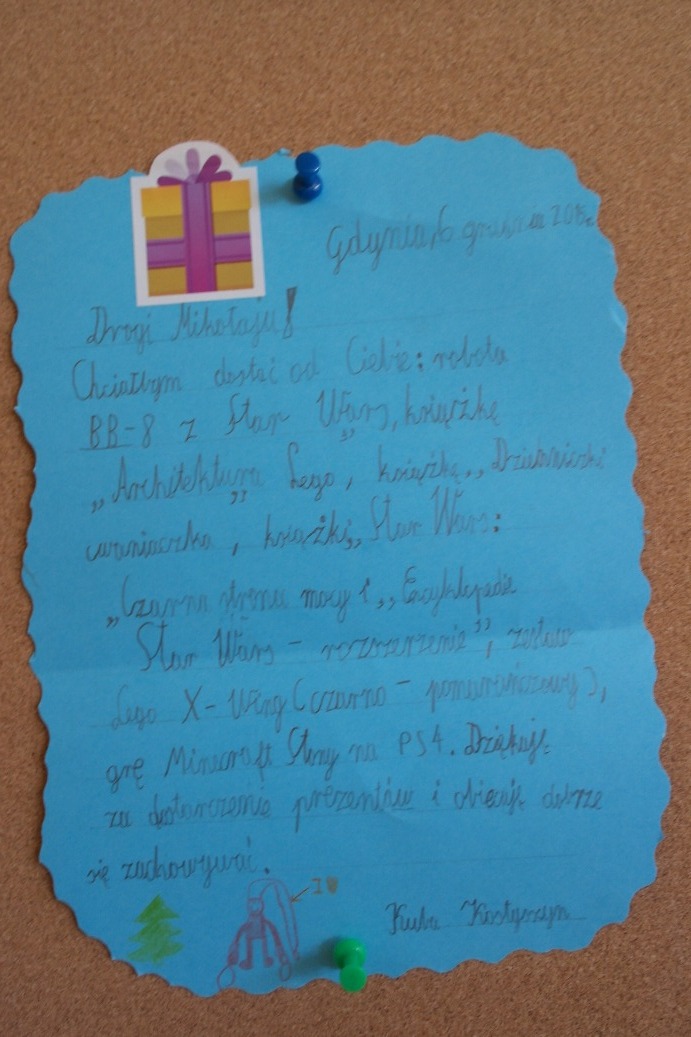 Gdynia, 6 grudnia 2015r.
Drogi Mikołaju!
Chciałbym dostać od Ciebie: robota
BB-8 z Star Wars, książkę
„Architektura" Lego, książkę „Dzienniczki
cwaniaczka, książki „Star Wars:
„Czarna strona mocy i „Encyklopedie
Star Wars - rozszerzenie", zestaw
Lego X-Wing (czarno - pomarańczowy),
grę Minecraft Story na PS4. Dziękuję
za dostarczenie prezentów i obiecuję dobrze
się zachowywać.
Kuba